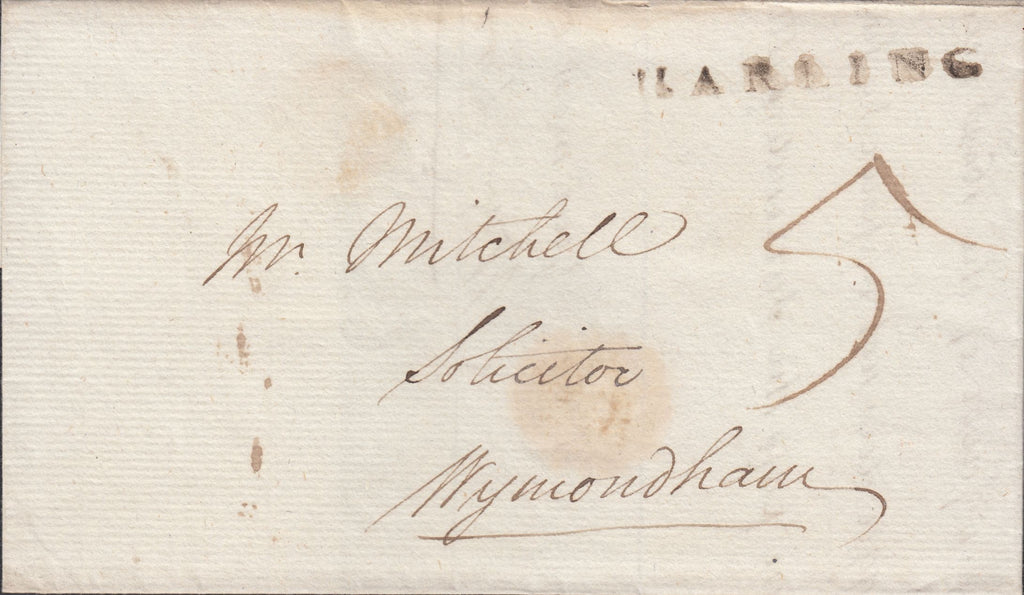 HARLING
5
Mr. Mitchell
Solicitor
Wymondham